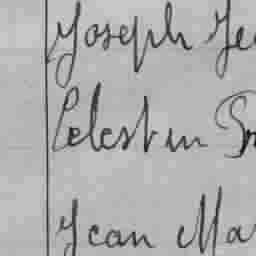 Joseph Je
Celestin
Jean Ma